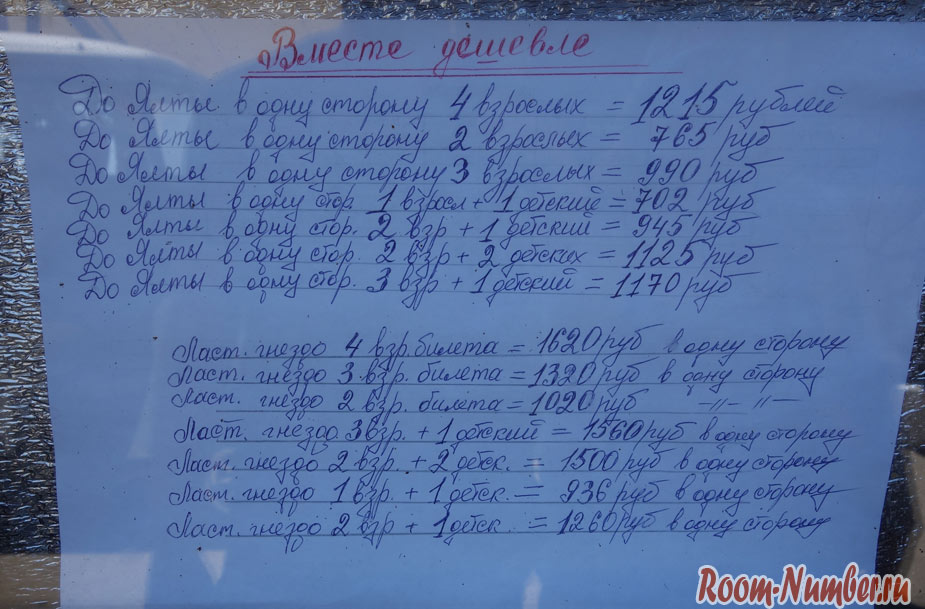 Вместе дешевле
До Ялты в одну сторону 4 взрослых = 1215 рублей
До Ялты в одну сторону 2 взрослых = 765 руб
До Ялты в одну сторону 3 взрослых = 990 руб
До Ялты в одну стор. 1 взросл + 1 детский = 702 руб
До Ялты в одну стор. 2 взр + 1 детский = 945 руб
До Ялты в одну стор. 2 взр + 2 детских = 1125 руб
До Ялты в одну стор. 3 взр + 1 детский = 1170 руб
Ласт. гнездо 4 взр. билета = 1620 руб в одну сторону
Ласт. гнездо 3 взр. билета = 1320 руб в одну сторону
Ласт. гнездо 2 взр. билета = 1020 руб -//- -//-
Ласт. гнездо 3 взр. + 1 детский = 1560 руб в одну сторону
Ласт. гнездо 2 взр. + 2 детск. = 1500 руб в одну сторону
Ласт. гнездо 1 взр. + 1 детск. = 936 руб в одну сторону
Ласт. гнездо 2 взр + 1 детск. = 1260 руб в одну сторону
Room-Number.ru